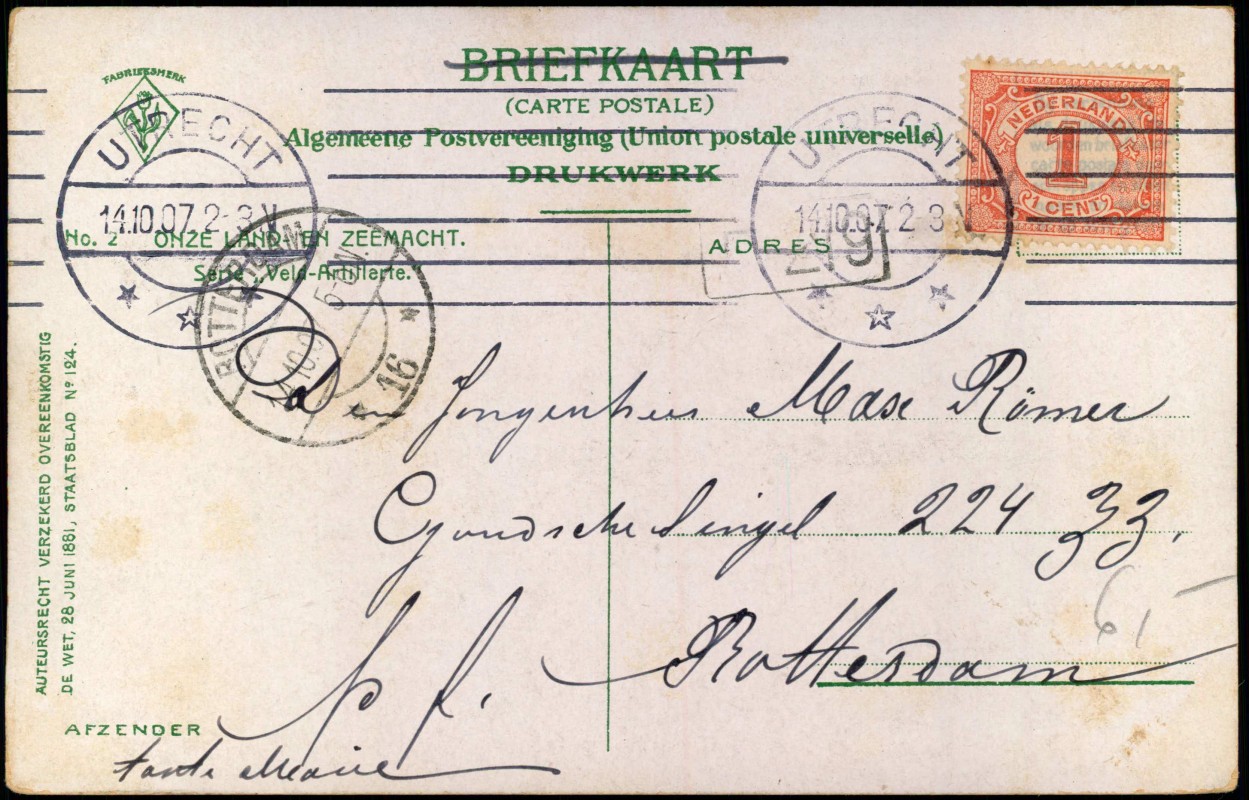 BRIEFKAART
(CARTE POSTALE)
Algemeene Postvereeniging (Union postale universelle)
DRUKWERK
FABRIEKSMERK
UTRECHT
14.10.07. 2-3 V
UTRECHT
14.10.07. 2-3 V
NEDERLAND
1
1 CENT
No. 2 ONZE LAND- EN ZEEMACHT.
Serie: Veld-Artillerie.
ADRES
ROTTERDAM
16
den Jongenheer Max Römer
Goudsche Singel 224
Rotterdam
p f.
61-
AFZENDER
tante Marie
AUTEURSRECHT VERZEKERD OVEREENKOMSTIG
DE WET, 28 JUNI 1881, STAATSBLAD No 124.